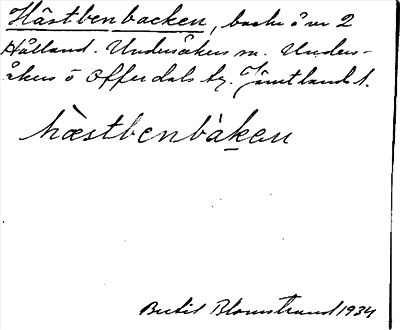 Hästbenbacken, backe över 2
Hålland. Undersåkers sn. Under-
åkers o Offerdals tg. Jämtlands l.
hæstbenbàken
Bertil Blomstrand 1934